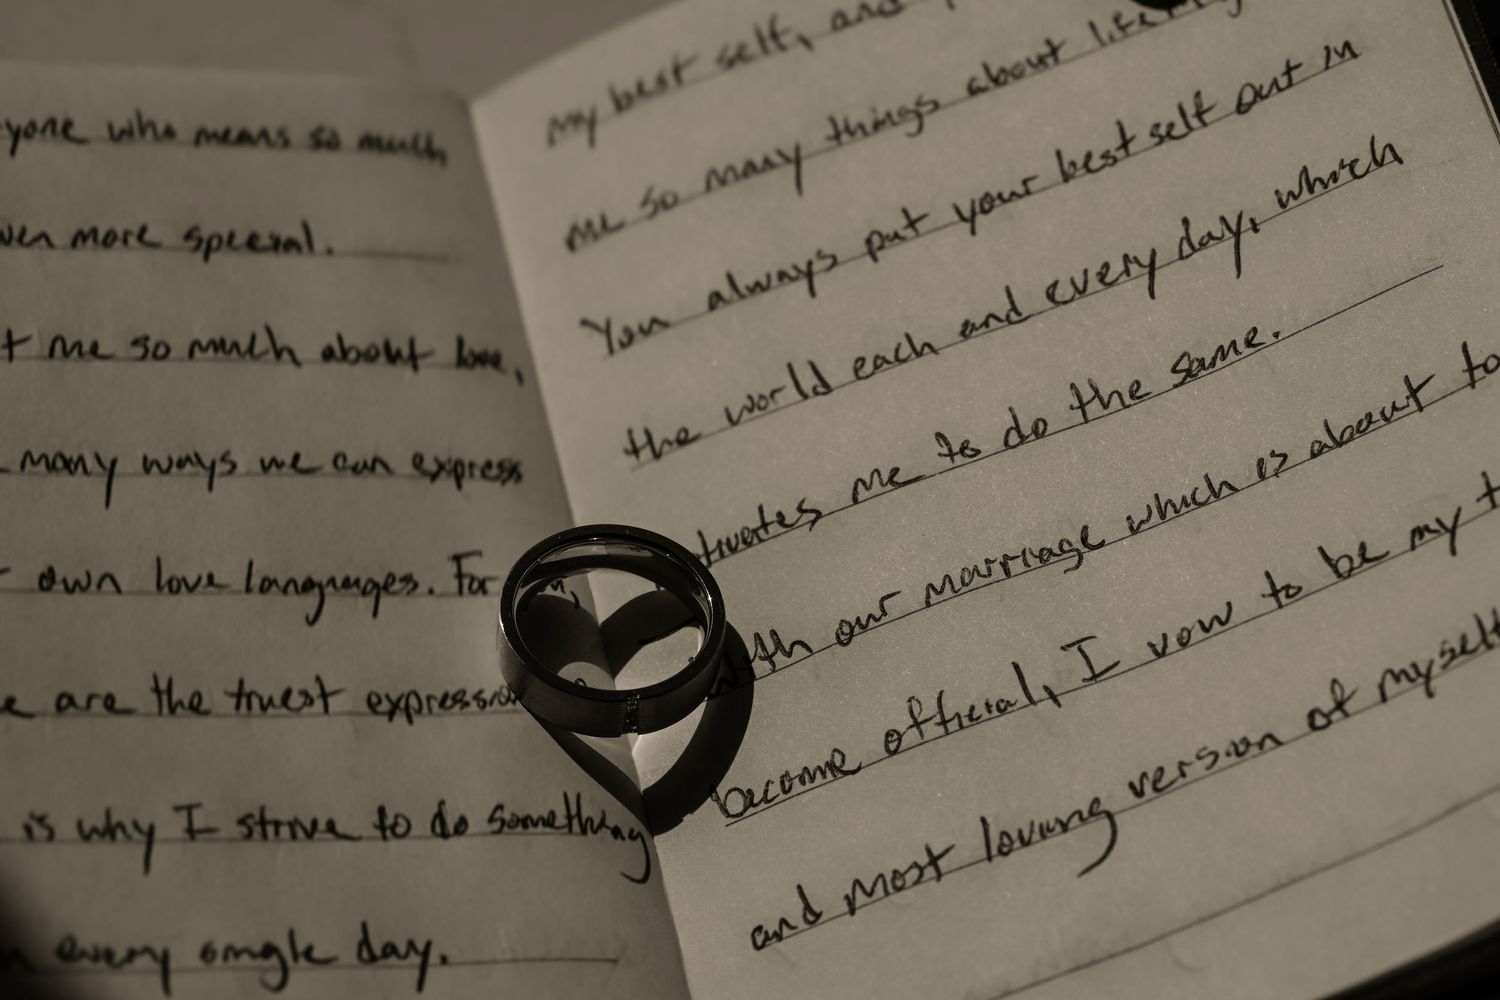 who means so much
more special.
me so much about love,
many ways we can express
own love languages. For
are the truest
is why I strive to do something
every single day.
my best self, and
me so many things about
You always put your best self out in
the world each and every day, which
me to do the same.
with our marriage which is about to
become official, I vow to be my
and most loving version of myself